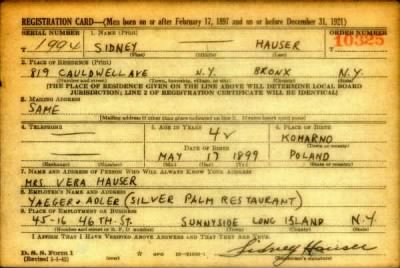 REGISTRATION CARD—(Men born on or after February 17, 1897 and on or before December 31, 1921)
SERIAL NUMBER 1. NAME (Print) ORDER NUMBER
T 1994 SIDNEY HAUSER 10325
(First) (Middle) (Last)
2. PLACE OF RESIDENCE (Print)
819 CAULDWELL AVE N.Y. BRONX N.Y.
(Number and street) (Town, township, village, or city) (County) (State)
[THE PLACE OF RESIDENCE GIVEN ON THE LINE ABOVE WILL DETERMINE LOCAL BOARD
JURISDICTION; LINE 2 OF REGISTRATION CERTIFICATE WILL BE IDENTICAL]
3. MAILING ADDRESS
SAME
[Mailing address if other than place indicated on line 2. If same insert word same]
4. TELEPHONE 5. AGE IN YEARS 6. PLACE OF BIRTH
42 KOMARNO
DATE OF BIRTH (Town or county)
MAY 17 1899 POLAND
(Exchange) (Number) (Mo.) (Day) (Yr.) (State or country)
7. NAME AND ADDRESS OF PERSON WHO WILL ALWAYS KNOW YOUR ADDRESS
MRS VERA HAUSER
8. EMPLOYER'S NAME AND ADDRESS
YAEGER + ADLER (SILVER PALM RESTAURANT)
9. PLACE OF EMPLOYMENT OR BUSINESS
45-16 46TH ST. SUNNYSIDE LONG ISLAND N.Y
(Number and street or R. F. D. number) (Town) (County) (State)
I AFFIRM THAT I HAVE VERIFIED ABOVE ANSWERS AND THAT THEY ARE TRUE.
D. S. S. Form 1 Sidney Hauser